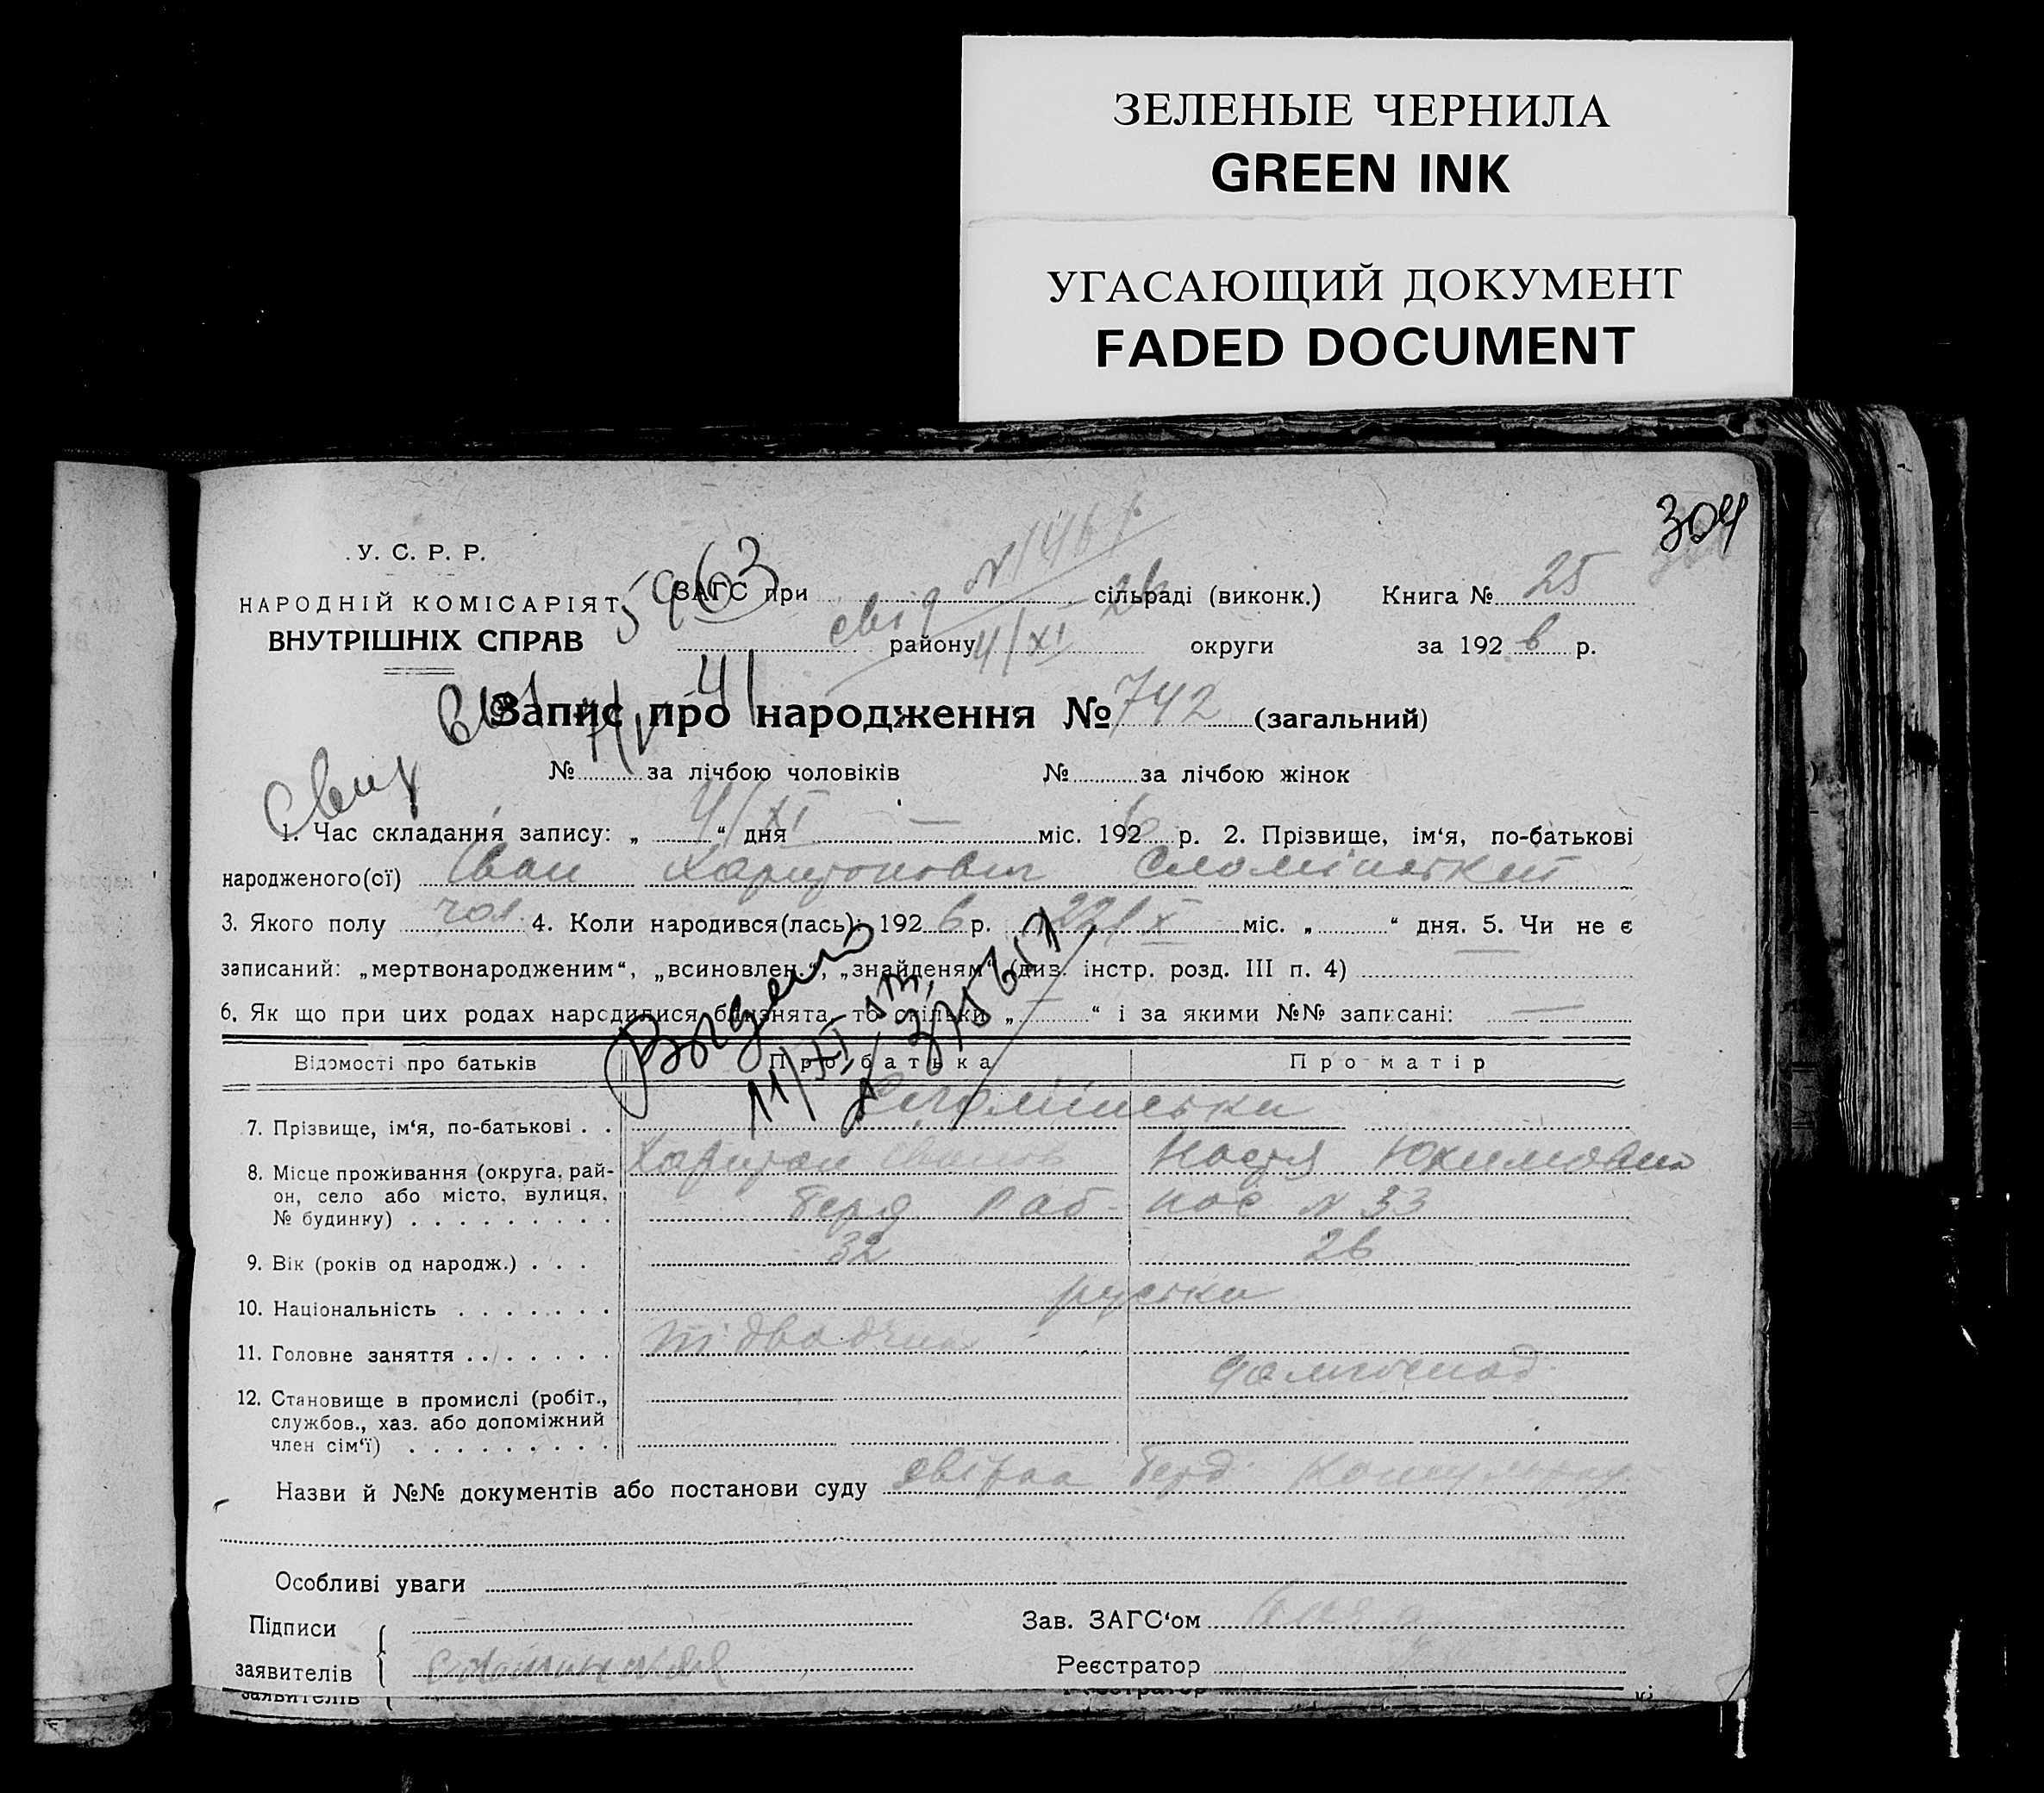 ЗЕЛЕНЫЕ ЧЕРНИЛА
GREEN INK
УГАСАЮЩИЙ ДОКУМЕНТ
FADED DOCUMENT
304
У. С. Р. Р.
НАРОДНІЙ КОМІСАРІЯТ
ВНУТРІШНІХ СПРАВ
5963
ЗАГС при сільраді (виконк.) Книга № 25
району округи за 1926 р.
свід N 1461
4/XI 26
Запис про народження № 742 (загальний)
№ за лічбою чоловіків № за лічбою жінок
1. Час складання запису: „4/XI“ дня — міс. 1926 р. 2. Прізвище, ім‘я, по-батькові
народженого(ої) Іван Харитонович Сломінський
3. Якого полу чол. 4. Коли народився(лась): 1926 р. 22/X міс. „ “ дня. 5. Чи не є
записаний: „мертвонародженим“, „всиновлен.“, „знайденям“ (див. інстр. розд. III п. 4)
6. Як що при цих родах народилися близнята, то скільки „—“ і за якими №№ записані: —
Відомості про батьків Про батька Про матір
7. Прізвище, ім‘я, по-батькові . . Сломінськи
Харитон Настя Юхимовна
8. Місце проживання (округа, рай-
он, село або місто, вулиця,
№ будинку) . . . . . . . . . Берд Раб - пос N 33
9. Вік (років од народж.) . . . 32 26
10. Національність . . . . . . . руськи
11. Головне заняття . . . . . . .
домгоспод
12. Становище в промислі (робіт.,
службов., хаз. або допоміжний
член сім‘ї) . . . . . . . . .
Назви й №№ документів або постанови суду Берд.
Особливі уваги
Підписи Зав. ЗАГС‘ом
заявителів Реєстратор
заявителів Реєстратор